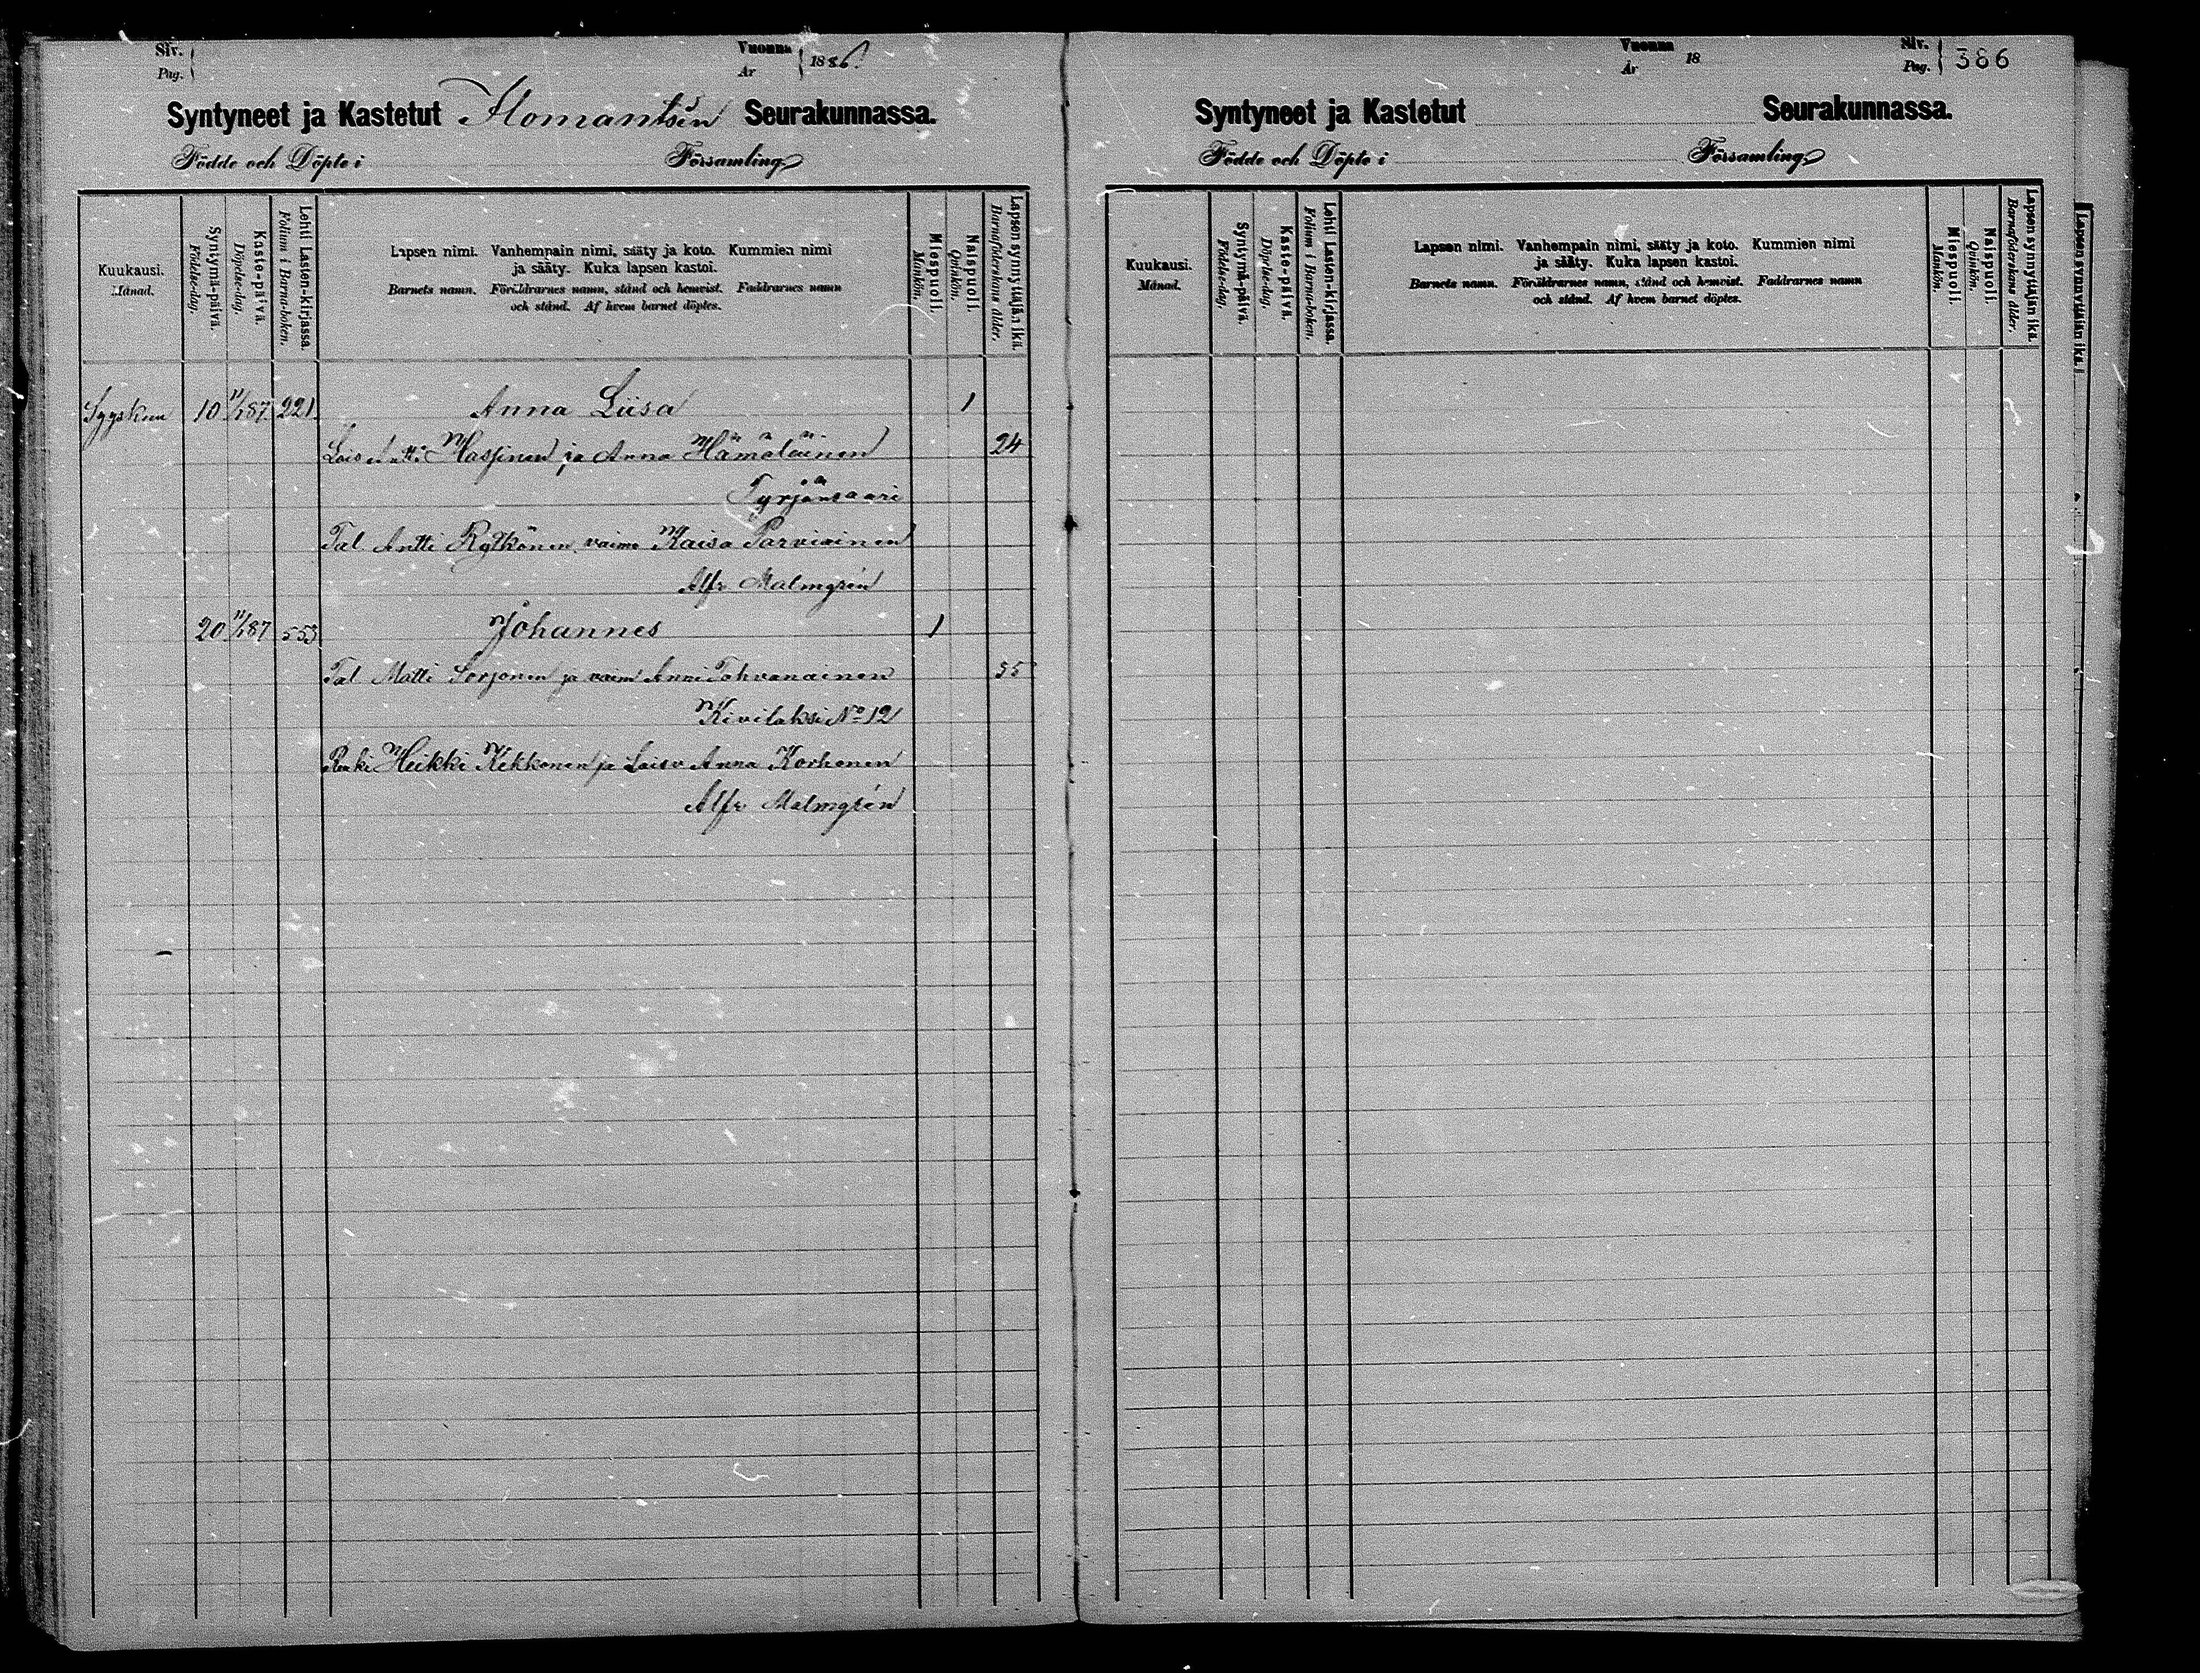 Siv.
Pag.
Vuonna
År
1886.
Syntyneet ja Kastetut Ilomantsin Seurakunnassa.
Födde och Döpte i Församling
Kuukausi.
Månad.
Syntymä-päivä.
Födelse-dag.
Kaste-päivä.
Döpelse-dag.
Lehti Lasten-kirjassa.
Folium i Barna-boken.
Lapsen nimi. Vanhempain nimi, sääty ja koto. Kummien nimi
ja sääty. Kuka lapsen kastoi.
Barnets namn. Föräldrarnes namn, stånd och hemvist. Faddrarnes namn
och stånd. Af hvem barnet döptes.
Miespuoli.
Mankön.
Naispuoli.
Qvinkön.
Lapsen synnyttäjän ikä.
Barnaföderskans ålder.
Syyskuu 10 87 221 Anna Liisa 1
Antti Hassinen ja Anna Hämäläinen 24
Tyrjänsaari
Tal Antti Rytkönen vaimo Kaisa Parviainen
Alfr Malmgrén
20 87 553 Johannes 1
Tal Matti Sorjonen ja vaim Anni Tahvanainen
Kivilaksi No 12
Renki Heikki Kekkonen ja Anna Korhonen
Alfr Malmgrén
Vuonna
År
18
Siv.
Pag.
386
Syntyneet ja Kastetut Seurakunnassa.
Födde och Döpte i Församling
Kuukausi.
Månad.
Syntymä-päivä.
Födelse-dag.
Kaste-päivä.
Döpelse-dag.
Lehti Lasten-kirjassa.
Folium i Barna-boken.
Lapsen nimi. Vanhempain nimi, sääty ja koto. Kummien nimi
ja sääty. Kuka lapsen kastoi.
Barnets namn. Föräldrarnes namn, stånd och hemvist. Faddrarnes namn
och stånd. Af hvem barnet döptes.
Miespuoli.
Mankön.
Naispuoli.
Qvinkön.
Lapsen synnyttäjän ikä.
Barnaföderskans ålder.
Lapsen synnyttäjän ikä.